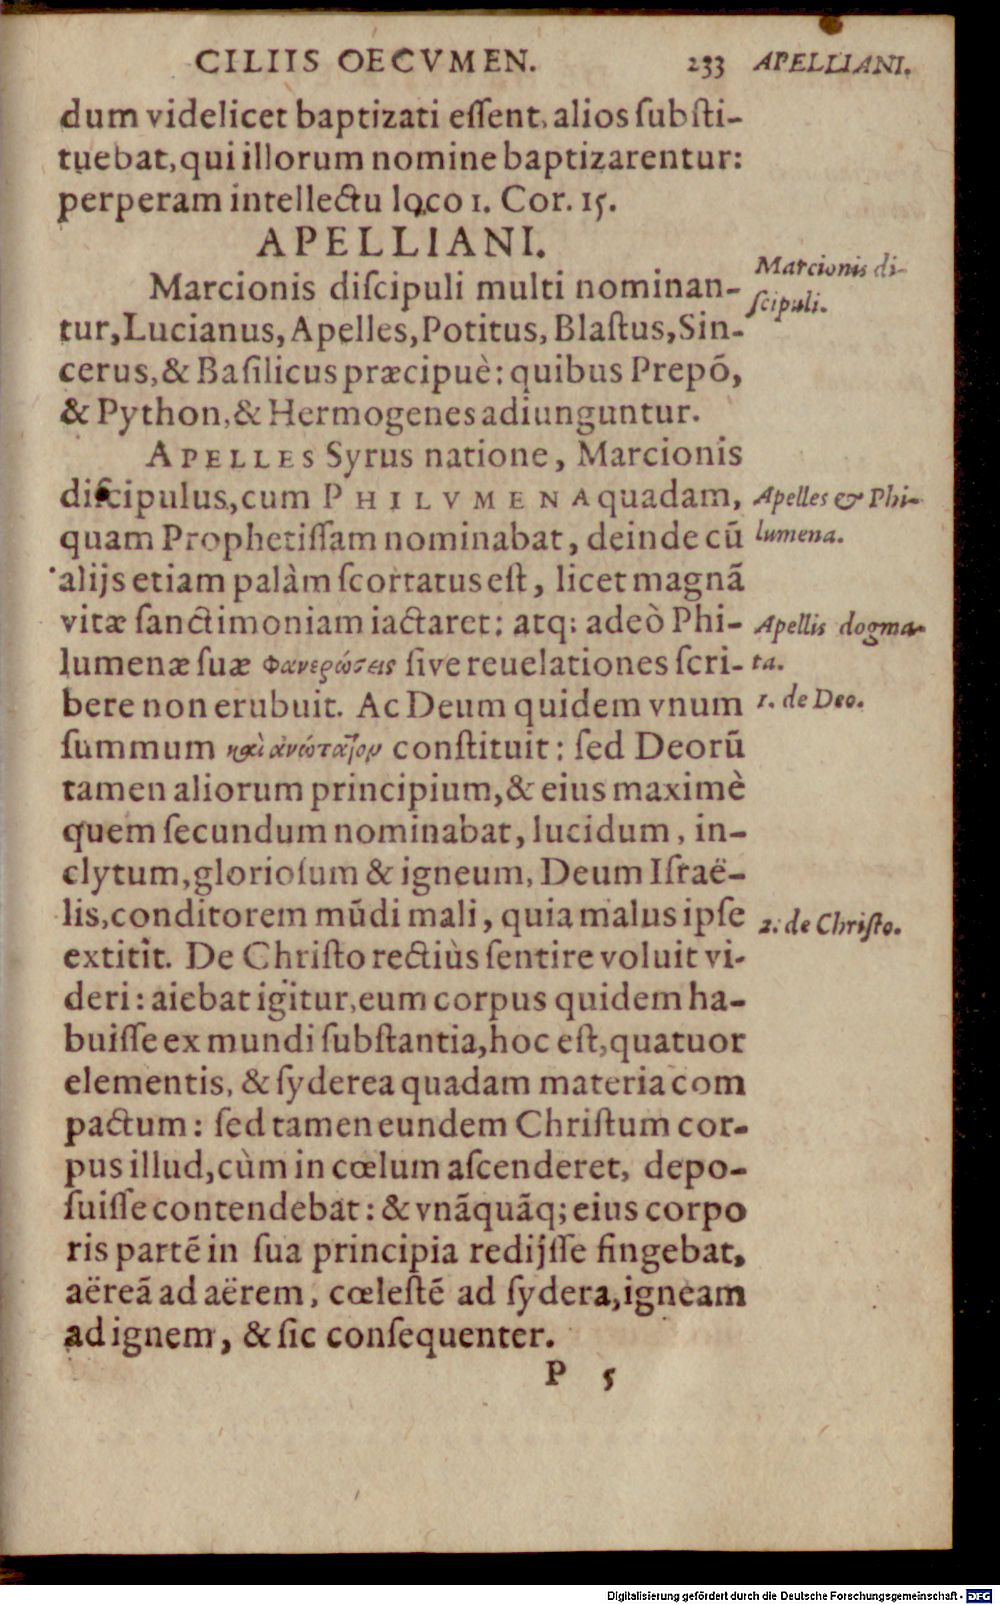 CILIIS OECVMEN. 233 APELLIANI.
dum videlicet baptizati eſſent, alios ſubſti-
tuebat, qui illorum nomine baptizarentur:
perperam intellectu loco 1. Cor. 15.
APELLIANI.
Marcionis diſcipuli multi nominan-
tur, Lucianus, Apelles, Potitus, Blaſtus, Sin-
cerus, & Baſilicus præcipuè: quibus Prepō,
& Python, & Hermogenes adiunguntur.
Marcionis di-
ſcipuli.
APELLES Syrus natione, Marcionis
diſcipulus, cum PHILVMENA quadam,
quam Prophetiſſam nominabat, deinde cū
alijs etiam palàm ſcortatus eſt, licet magnā
vitæ ſanctimoniam iactaret: atq; adeò Phi-
lumenæ ſuæ Φανερώσεις ſive reuelationes ſcri-
bere non erubuit. Ac Deum quidem vnum
ſummum καὶ ἀνώτατον conſtituit: ſed Deorū
tamen aliorum principium, & eius maximè
quem ſecundum nominabat, lucidum, in-
clytum, glorioſum & igneum, Deum Iſraë-
lis, conditorem mūdi mali, quia malus ipſe
extitit. De Chriſto rectiùs ſentire voluit vi-
deri: aiebat igitur, eum corpus quidem ha-
buiſſe ex mundi ſubſtantia, hoc eſt, quatuor
elementis, & ſyderea quadam materia com
pactum: ſed tamen eundem Chriſtum cor-
pus illud, cùm in cœlum aſcenderet, depo-
ſuiſſe contendebat: & vnāquāq; eius corpo
ris partē in ſua principia redijſſe fingebat,
aëreā ad aërem, cœleſtē ad ſydera, igneam
ad ignem, & ſic conſequenter.
Apelles & Phi-
lumena.
Apellis dogma-
ta.
1. de Deo.
2. de Chriſto.
P 5
Digitalisierung gefördert durch die Deutsche Forschungsgemeinschaft - DFG